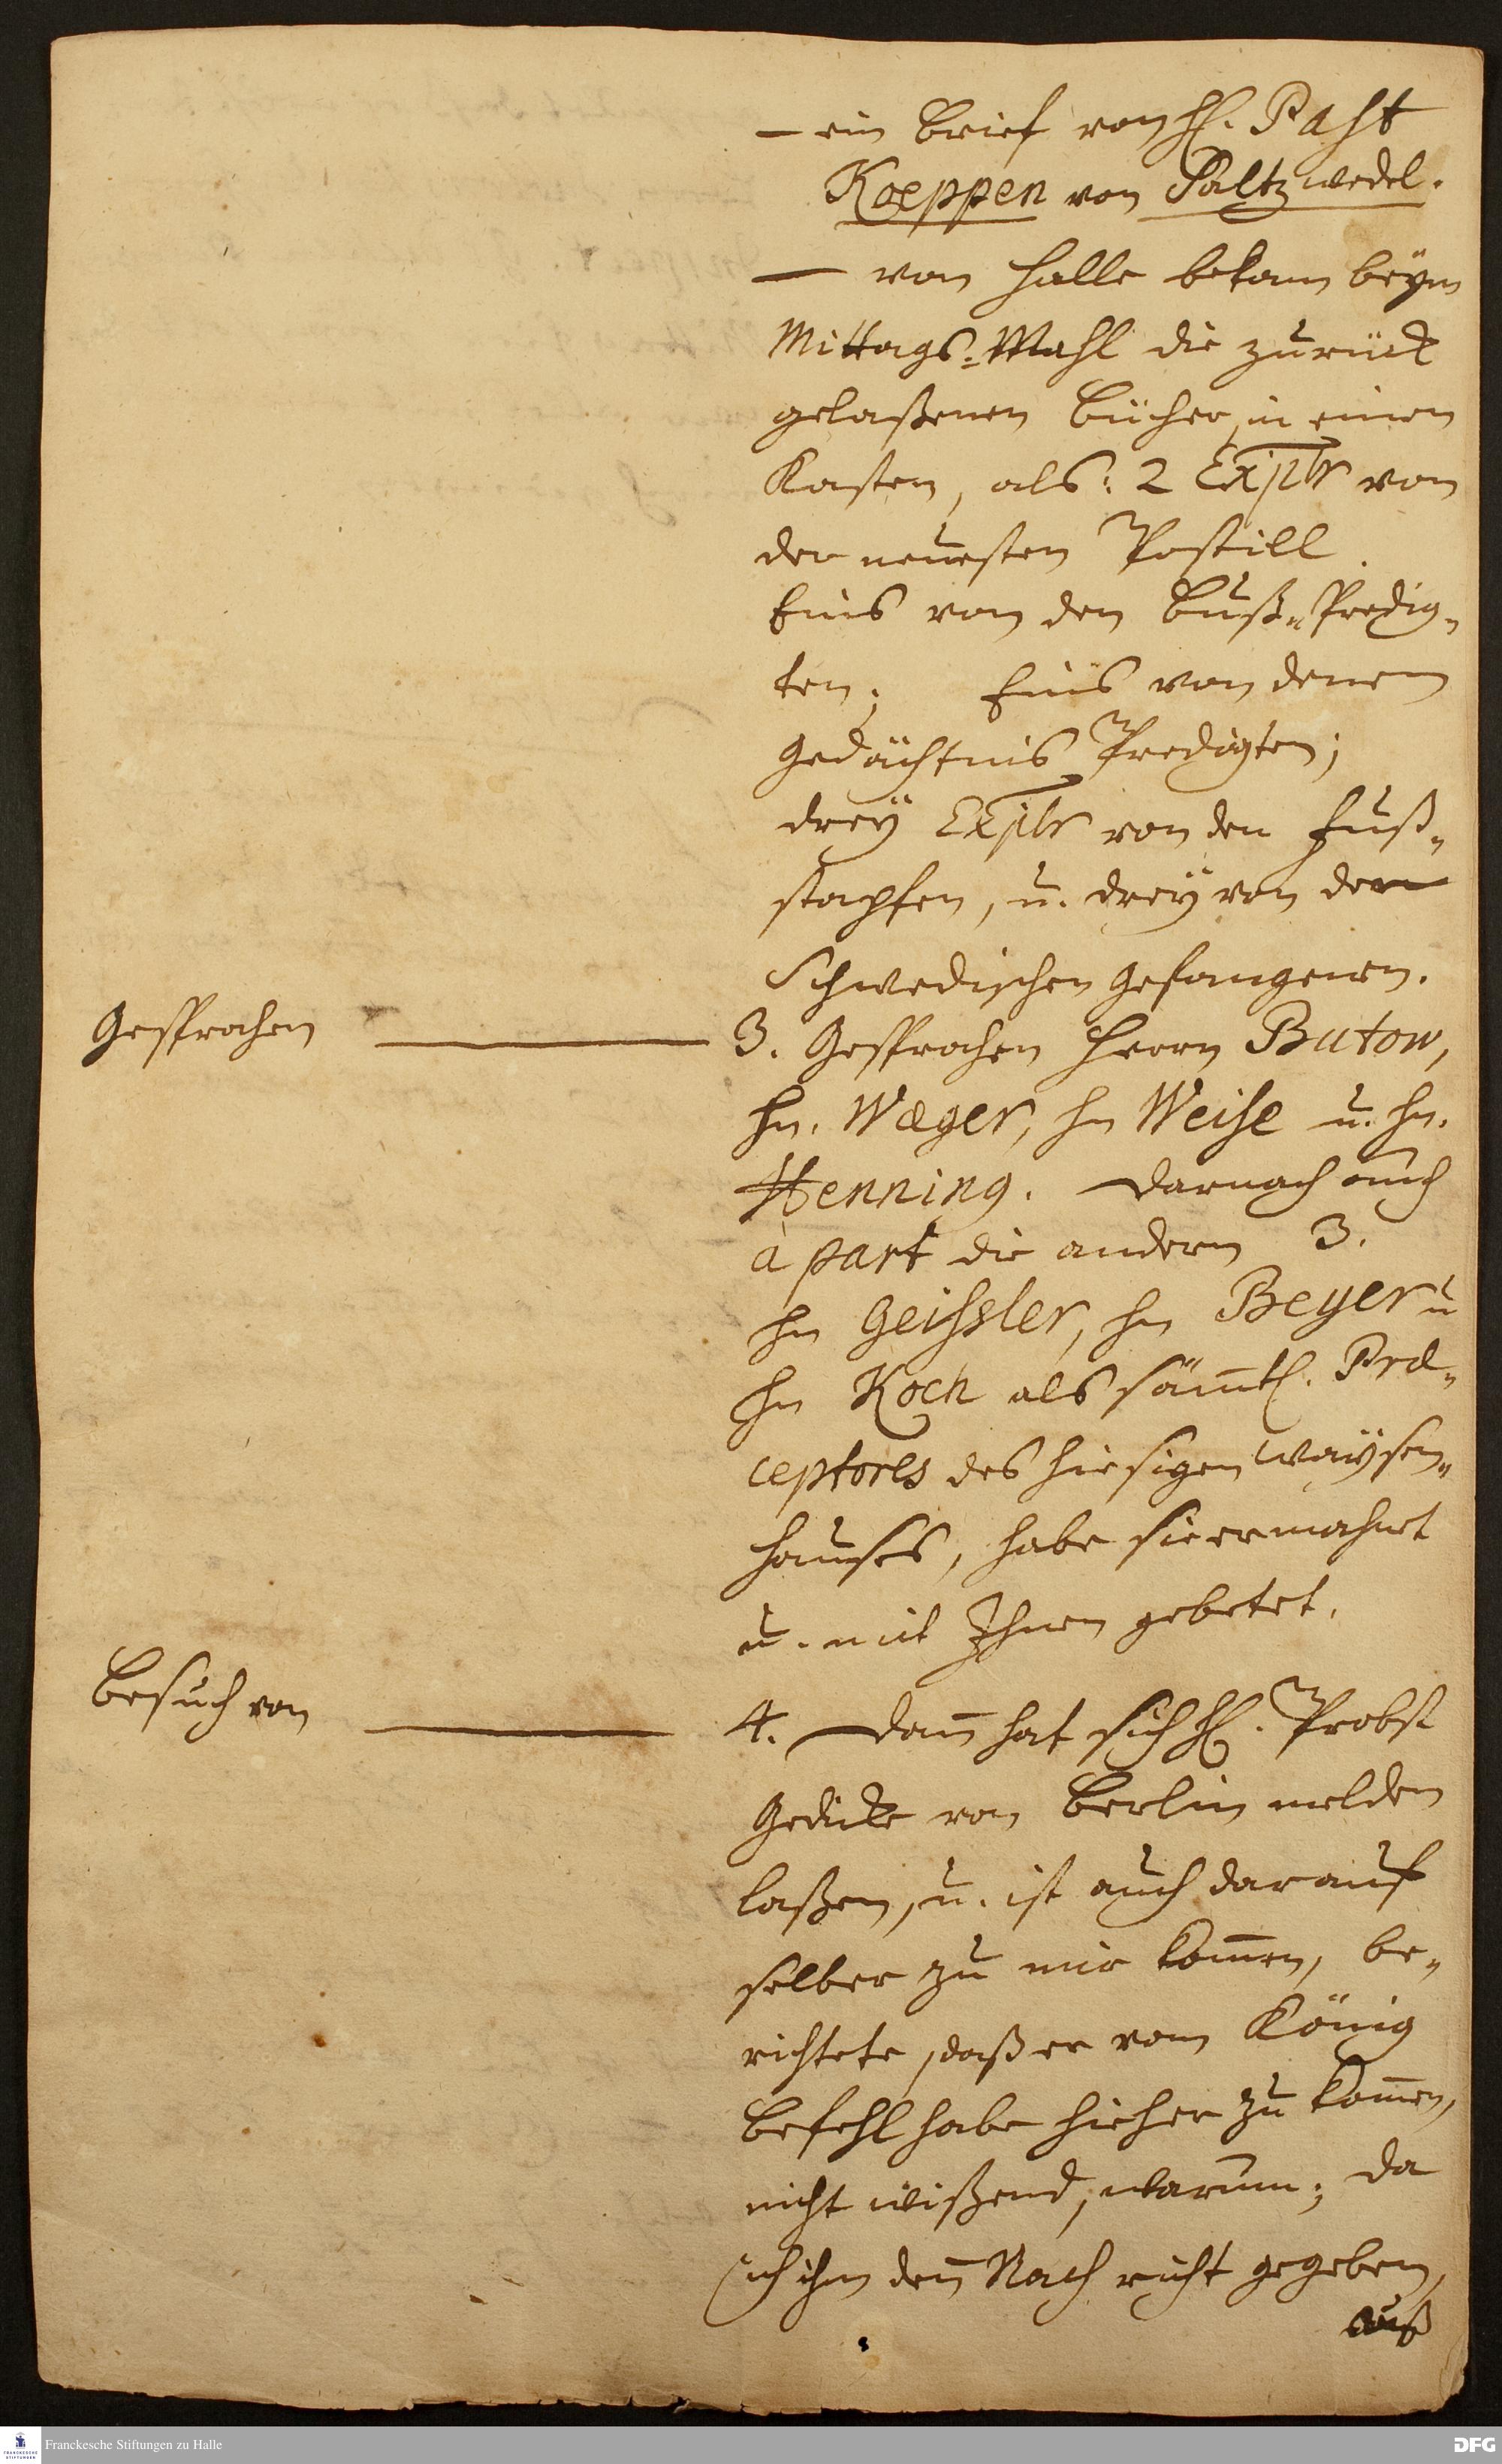 – ein brief von H. Past
Koeppen von Saltzwedel.
– von Halle bekam beÿm
Mittags-Mahl die zurück
gelaßenen bücher, in einen
Kasten, als: 2 Expls von
der neuesten Postill.
Eins von den buß-Predig-
ten; Eins von denen
Gedächtnis Predigten;
dreÿ Expls von den Fuß-
stapfen, u. dreÿ von den
Schwedischen Gefangenen.
Gesprochen
3. Gesprochen Herrn Butow,
Hn. Wæger, Hn Weise u. Hn.
Henning. Darnach auch
à part die andern 3.
Hn Geissler, Hn Beyer u
Hn Koch als sämtl. Præ-
ceptores des hiesigen Waÿsen-
hauses, habe sie ermahnet
u. mit Ihnen gebetet.
besuch von
4. Dann hat sich H. Probst
Gedicke von Berlin melden
laßen, u. ist auch darauf
selber zu mir komen, be-
richtete, daß er vom König
befehl habe hieher zu komen,
nicht wißend, warum; da
ich ihm den Nachricht gegeben,
auß
Franckesche Stiftungen zu Halle
DFG